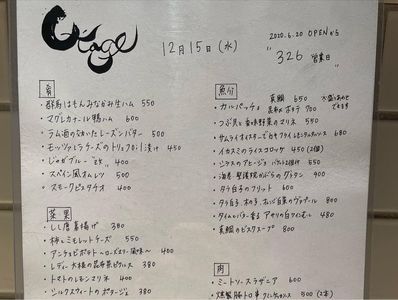 Otage
12月15日(水)
2020.6.20 OPENから
"326 営業日"
肴
・群馬はもんみなかみ生ハム 550
・マグレカナール鴨ハム 600
・ラム酒のなかったレーズンバター 500
・モッツァレラチーズのトリュフ 450
・ブルー 400
・スペイン風オムレツ 500
・スモークピスタチオ 400
菜果
・しし唐素揚げ 380
・柿とミモレットチーズ 550
・アンチョビポテト〜ローズマリー風味〜 400
・レディー大根の昆布茶ピクルス 380
・トマトのレモンマリネ 400
・シルクスイートのポタージュ 380
魚介
・カルパッチョ 真鯛 650
昆布〆ホタテ 700
・つぶ貝と香味野菜のマリネ 550
・サムライオイスター 白キフライ 680
・イカスミのライスコロッケ 450(2個)
・シラスのアヒージョ バケット2個付 550
・海老、聖護院かぶらのグラタン 900
・タラ白子のフリット 600
・タラ白子、木の子、 のプロヴァンス 800
・タイムとバター香る アサリの白ワインむし 480
・真鯛のビスクスープ 800
肉
・ミートソースラザニア 600